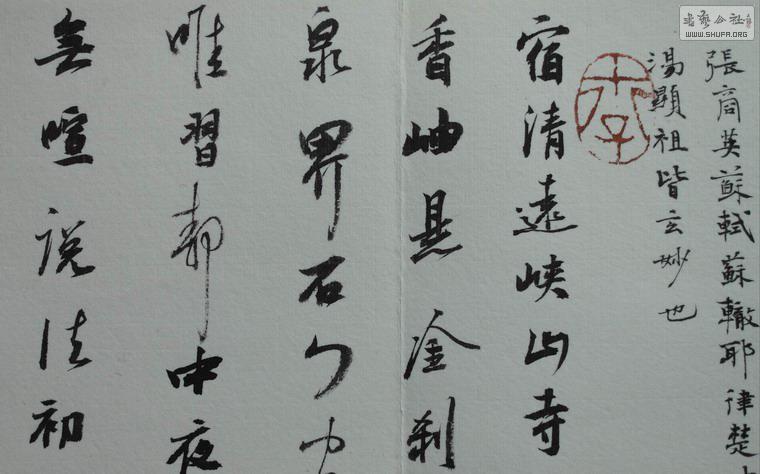 張商英蘇軾蘇轍耶律楚
湯顯祖皆玄妙也
宿清遠峽山寺
香岫悬金刹
泉界石门
唯習靜中夜
無喧説法初
书艺公社
WWW.SHUFA.ORG